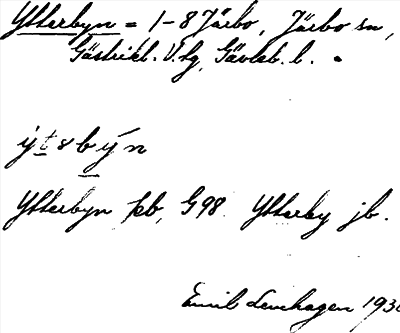 Ytterbyn = 1-8 Järbo, Järbo sn,
Gästrikl. V. tg, Gävleb. l.
ýt8býn
Ytterbyn kb, G98 Ytterby jb.
Emil Levehagen 193